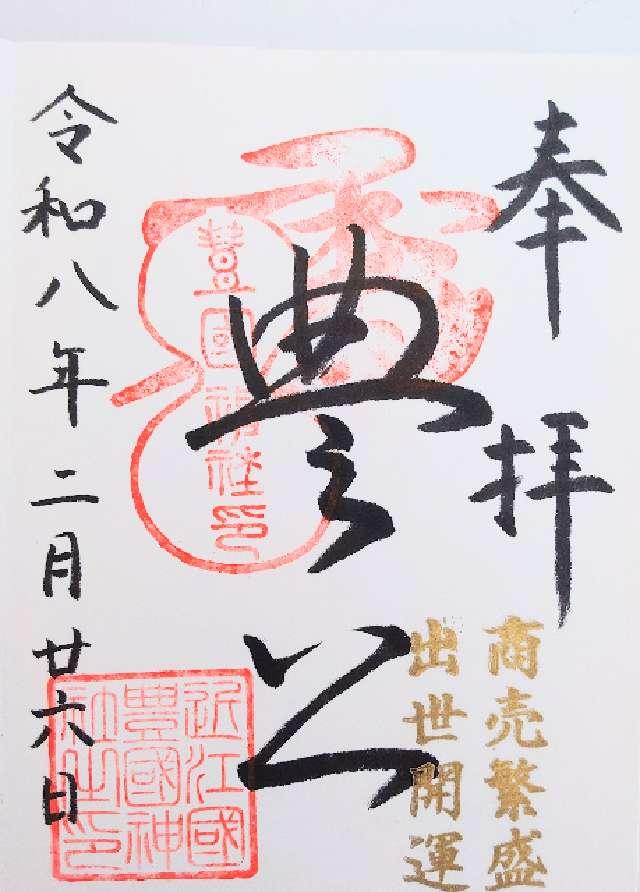 奉拝
商売繁盛
出世開運
豊公
豊國神社印
近江國
豊國神
社之印
令和八年二月廿六日